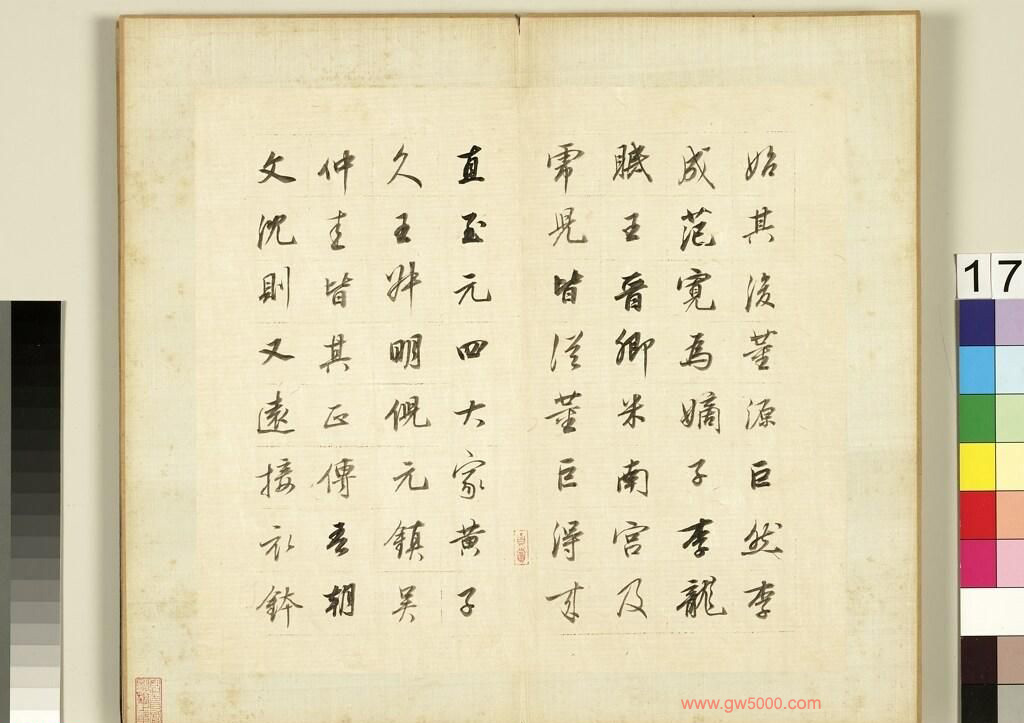 始其後董源巨然李
成范寬為嫡子李龍
眠王晉卿米南宮及
帍兒皆從董巨得來
直至元四大家黃子
久王叔明倪元鎮吳
仲圭皆其正傳吾朝
文沈則又遠接衣鉢
17
www.gw5000.com